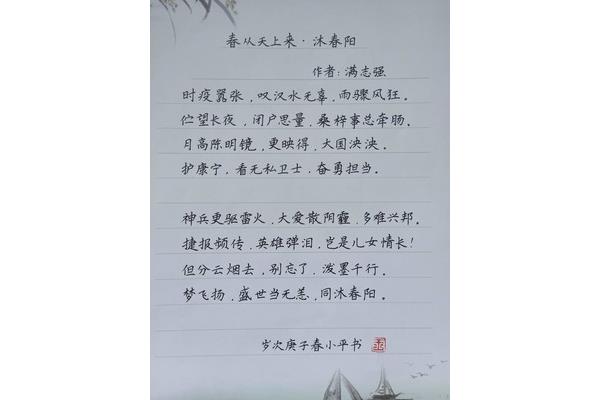 春从天上来·沐春阳
作者:满志强
时疫嚣张,叹汉水无辜,雨骤风狂。
伫望长夜,闭户思量,桑梓事总牵肠。
月高陈明镜,更映得,大国泱泱。
护康宁,看无私卫士,奋勇担当。
神兵更驱雷火,大爱散阴霾,多难兴邦。
捷报频传,英雄弹泪,岂是儿女情长!
但分云烟去,别忘了,泼墨千行。
梦飞扬,盛世当无恙,同沐春阳。
岁次庚子春小平书